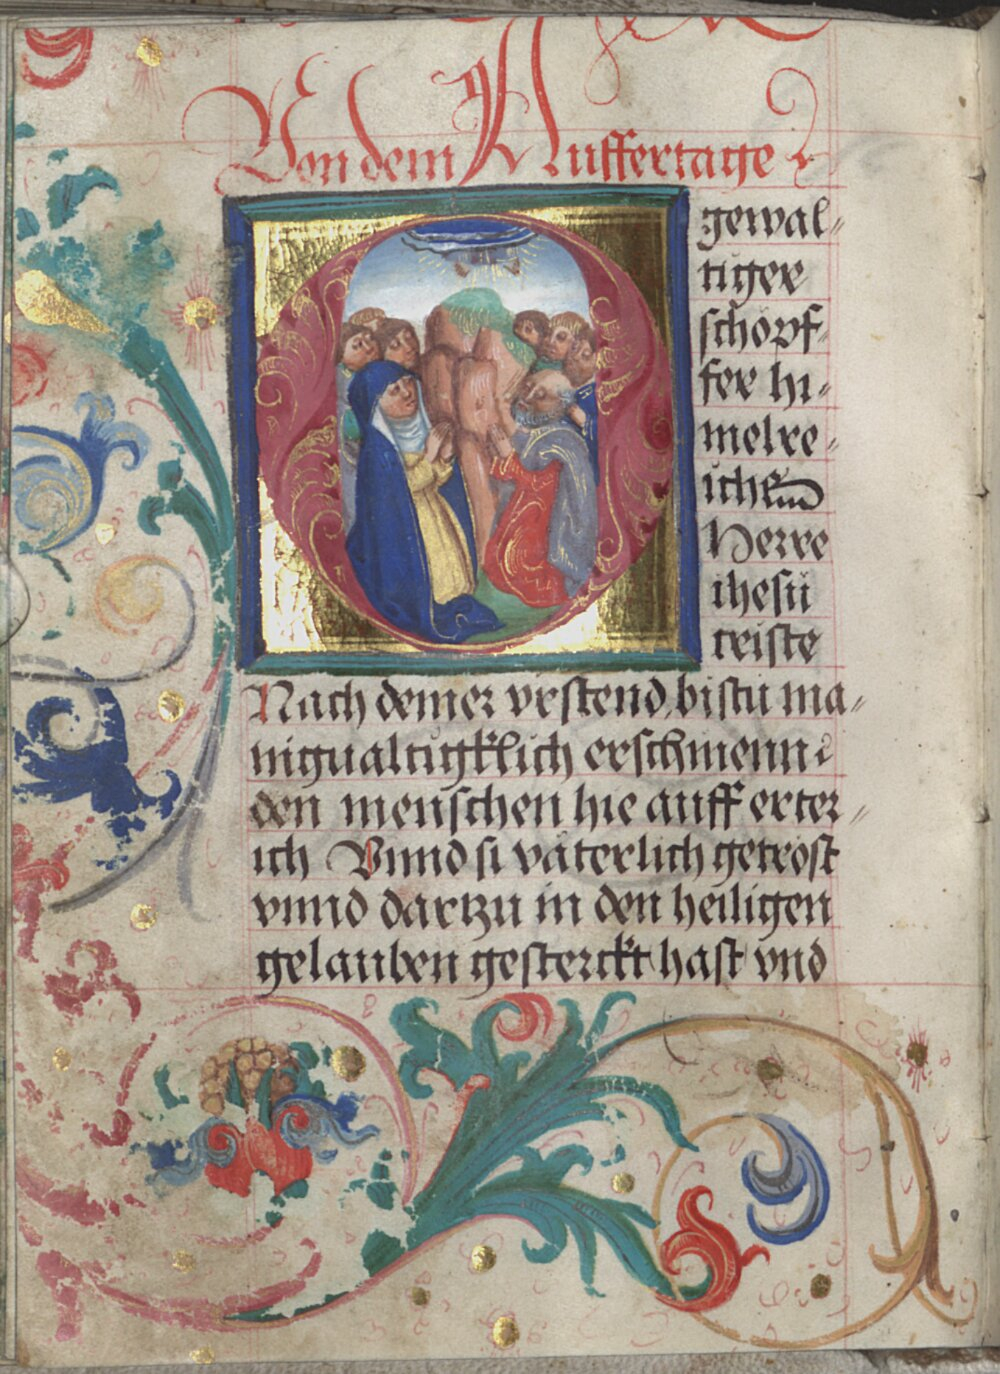 Von dem Auffertage
O
gewal-
tiger
schöpf-
fer hi-
melre-
ich
Herre
ihesu
criste
Nach deiner vrstend bistu ma-
nigualtigklich erschinenn
den menschen hie auff erter-
ich Vnnd si våterlich getröst
vnnd dartzu in den heiligen
gelauben gesterckt hast vnd